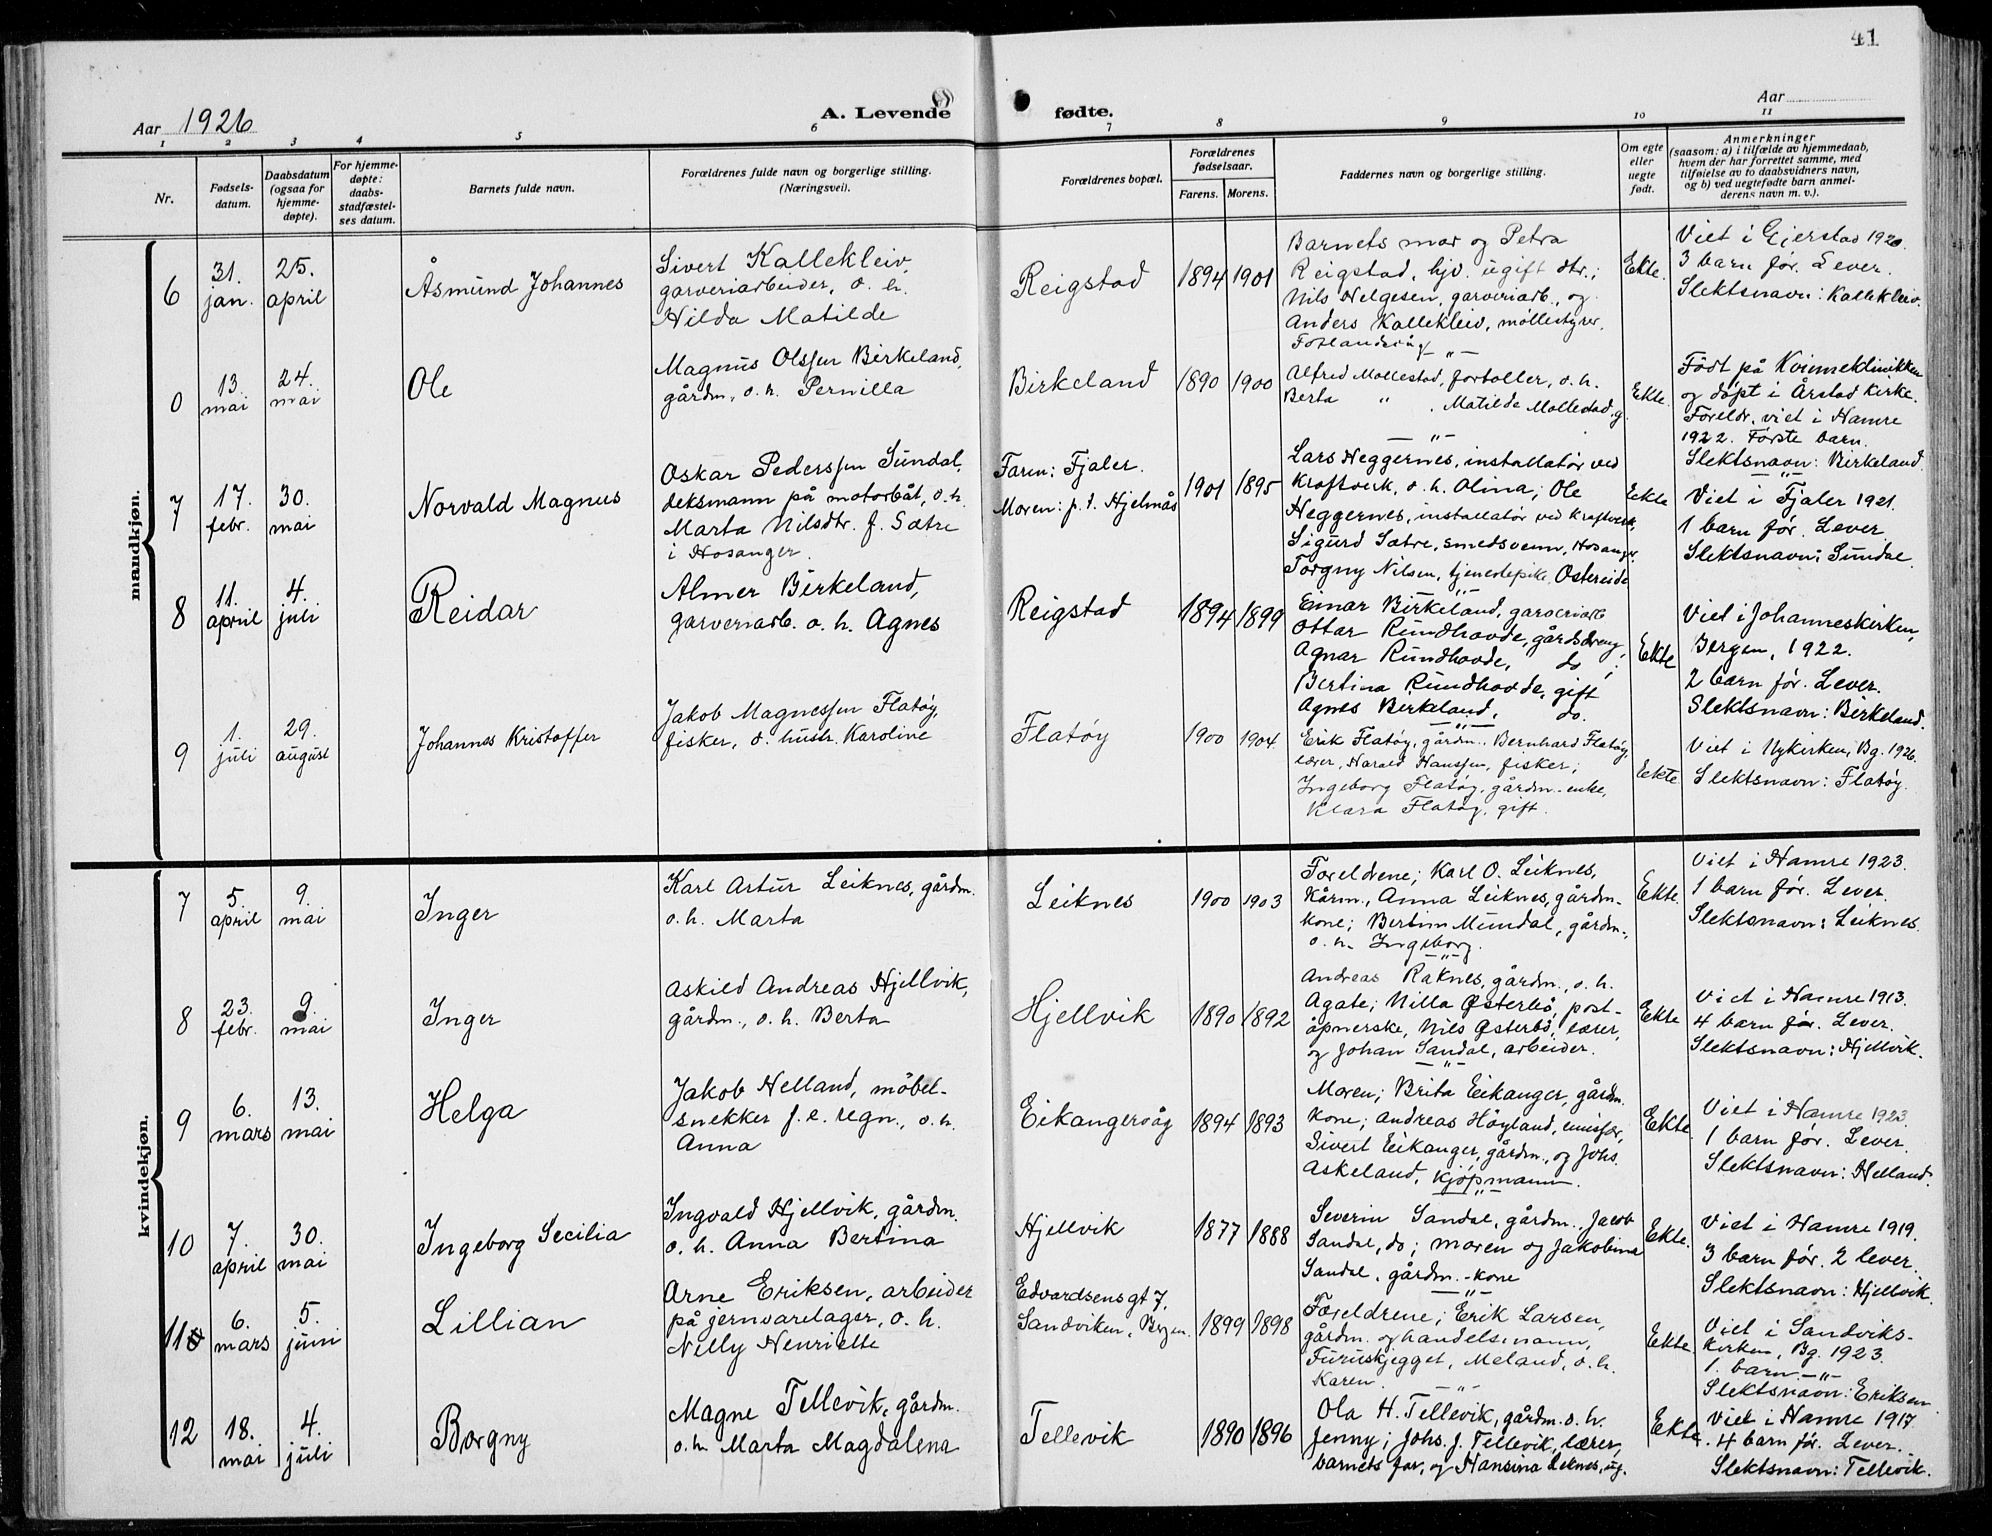 41
Aar 1926
A. Levende fødte.
Aar
1 2 3 4 5 6 7 8 9 10 11
Nr.
Fødsels-
datum.
Daabsdatum
(ogsaa for
hjemme-
døpte).
For hjemme-
døpte:
daabs-
stadfæstel-
ses datum.
Barnets fulde navn.
Forældrenes fulde navn og borgerlige stilling.
(Næringsvei).
Forældrenes bopæl.
Forældrenes
fødselsaar.
Farens. Morens.
Faddernes navn og borgerlige stilling.
Om egte
eller
uegte
født.
Anmerkninger
(saasom: a) i tilfælde av hjemmedaab,
hvem der har forrettet samme, med
tilføielse av to daabsvidners navn,
og b) ved uegtefødte barn anmel-
derens navn m. v.).
mandkjøn.
6
31.
jan.
25.
april
Åsmund Johannes
Sivert Kallekleiv,
garveriarbeider, o. h.
Hilda Matilde
Reigstad
1894 1901
Barnets mor og Petra
Reigstad, hjv. ugift dtr.;
Nils Helgesen, garveriarb., og
Anders Kallekleiv, møllestyrer,
Fotlandsvåg
Ekte.
Viet i Gjerstad 1920.
3 barn før. Lever.
Slektsnavn: Kallekleiv.
0
13.
mai
24.
mai
Ole
Magnus Olssen Birkeland,
gårdm., o. h. Pernilla
Birkeland
1890 1900
Alfred Mollestad, fortoller, o. h.
Berta „ , Matilde Mollestad, g.
Ekte.
Født på Kvinneklinikken
og døpt i Årstad kirke.
Foreldr. viet i Hamre
1922. Første barn.
Slektsnavn: Birkeland.
7
17.
febr.
30.
mai
Norvald Magnus
Oskar Pederssen Sundal,
deksmann på motorbåt, o. h.
Marta Nilsdtr. f. Sætre
i Hosanger.
Faren: Fjaler.
Moren: p. t. Hjelmås
1901 1895
Lars Heggernes, installatør ved
kraftverk, o. h. Olina; Ole
Heggernes, installatør ved kraftverk,
Sigurd Sætre, smedsvenn, Hosanger,
Torgny Nilsen, tjenestepike, Ostereide
Ekte
Viet i Fjaler 1921.
1 barn før. Lever.
Slektsnavn: Sundal.
8
11.
april
4.
juli
Reidar
Almer Birkeland,
garveriarb. o. h. Agnes
Reigstad
1894 1899
Einar Birkeland, garveriarb
Ottar Rundhovde, gårdsdreng,
Agnar Rundhovde, do ;
Bertina Rundhovde, gift
Agnes Birkeland, do.
Ekte
Viet i Johanneskirken,
Bergen, 1922.
2 barn før. Lever.
Slektsnavn: Birkeland.
9
1.
juli
29.
august
Johannes Kristoffer
Jakob Magnessen Flatøy,
fisker, o. hustr. Karoline
Flatøy
1900 1904
Erik Flatøy, gårdm., Bernhard Flatøy,
lærer, Harald Hanssen, fisker;
Ingeborg Flatøy, gårdm.-enke,
Klara Flatøy, gift.
Ekte.
Viet i Nykirken, Bg. 1926.
Slektsnavn: Flatøy.
kvindekjøn.
7
5.
april
9.
mai
Inger
Karl Artur Leiknes, gårdm.
o. h. Marta
Leiknes
1900 1903
Foreldrene; Karl O. Leiknes,
kårm., Anna Leiknes, gårdm-
kone; Bertin Mundal, gårdm.,
o. h. Ingeborg.
Ekte.
Viet i Hamre 1923.
1 barn før. Lever.
Slektsnavn: Leiknes.
8
23.
febr.
9.
mai
Inger
Askild Andreas Hjellvik,
gårdm., o. h. Berta
Hjellvik
1890 1892
Andreas Raknes, gårdm., o. h.
Agate; Nilla Østerbø, post-
åpnerske, Nils Østerbø, lærer,
og Johan Sandal, arbeider.
Ekte
Viet i Hamre 1913.
4 barn før. Lever.
Slektsnavn: Hjellvik.
9
6.
mars
13.
mai
Helga
Jakob Helland, møbel-
snekker f. e. regn., o. h.
Anna
Eikangervåg
1894 1893
Moren; Brita Eikanger, gårdm.
kone; Andreas Høyland, emissær,
Sivert Eikanger, gårdm., og Johs.
Askeland, kjøpmann.
Ekte.
Viet i Hamre 1923.
1 barn før. Lever.
Slektsnavn: Helland.
10
7.
april
30.
mai
Ingeborg Secilia
Ingvald Hjellvik, gårdm.
o. h. Anna Bertina
Hjellvik
1877 1888
Severin Sandal, gårdm., Jacob
Sandal, do; moren og Jakobina
Sandal, gårdm.-kone
Ekte.
Viet i Hamre 1919.
3 barn før. 2 lever.
Slektsnavn: Hjellvik.
11
6.
mars
5.
juni
Lillian
Arne Eriksen, arbeider
på jernvarelager, o. h.
Nilly Henriette
Edvardsensgt 7,
Sandviken, Bergen.
1899 1898
Foreldrene; Erik Larsen,
gårdm. og handelsmann,
Furuskjegget, Meland, o. h.
Karen.
Ekte.
Viet i Sandviks-
kirken, Bg. 1923.
1. barn. —„—
Slektsnavn: Eriksen
12
18.
mai
4.
juli
Borgny
Magne Tellevik, gårdm.
o. h. Marta Magdalena
Tellevik
1890 1896
Ola H. Tellevik, gårdm. o. h.
Jenny; Johs. J. Tellevik, lærer,
barnets far, og Hansina Leknes, ug.
Ekte.
Viet i Hamre 1917.
4 barn før. Lever.
Slektsnavn: Tellevik.